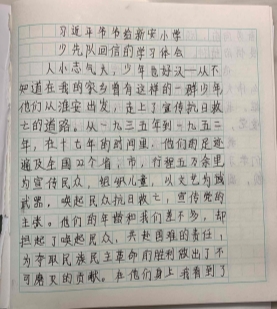 习近平爷爷给新安小学
少先队回信的学习体会
人小志气大，少年也好汉——从不
知道在我的家乡曾有这样的一群少年
他们从淮安出发，走上了宣传抗日救
亡的道路。从一九三五年到一九五二
年，在十七年的时间里，他们的足迹
遍及全国22个省、市，行程五万余里
为宣传民众，组织儿童，以文艺为
武器，唤起民众抗日救亡，宣传党的
主张。他们的年龄和我们差不多，却
担起了唤起民众，共赴国难的责任，
为夺取民族民主革命的胜利做出了不
可磨灭的贡献。在他们身上我看到了